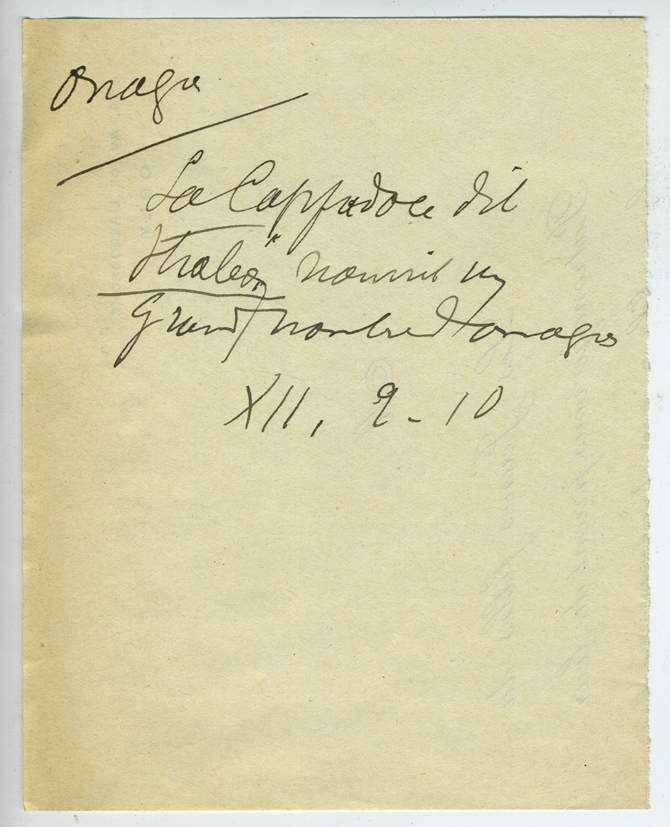 Onagre
La Cappadoce dit
Strabon nourrit un
grand nombre d'onagres
XII, 2-10